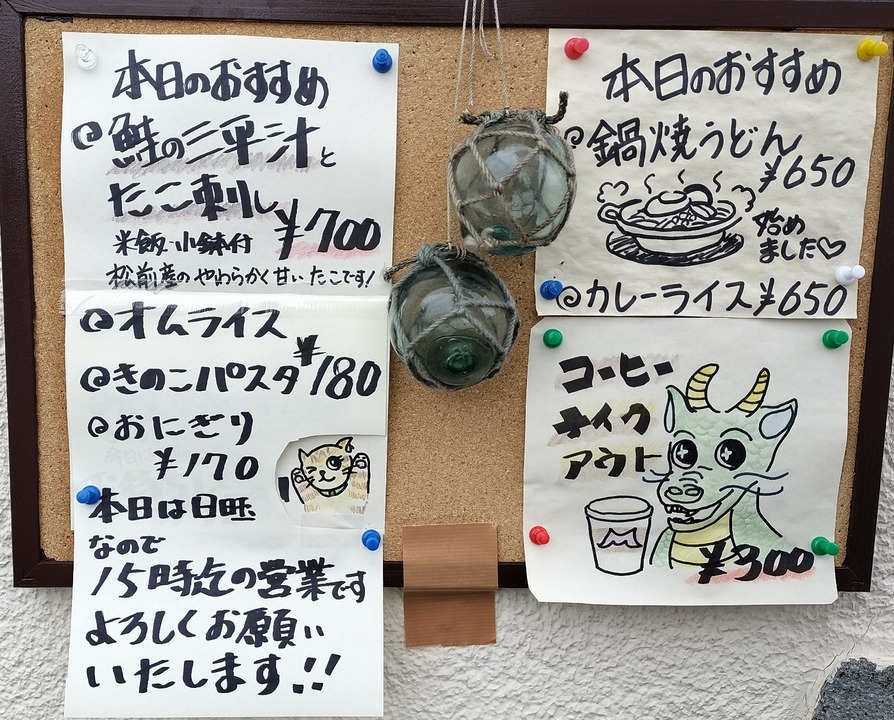 本日のおすすめ
鮭の三平汁と
たこ刺し
¥700
米飯・小鉢付
松前産のやわらかく甘いたこです!
オムライス
きのこパスタ ¥180
おにぎり
¥170
本日は日曜
なので
15時迄の営業です
よろしくお願い
いたします!!
本日のおすすめ
鍋焼うどん
¥650
始め
ました♡
カレーライス¥650
コーヒー
テイク
アウト
¥300